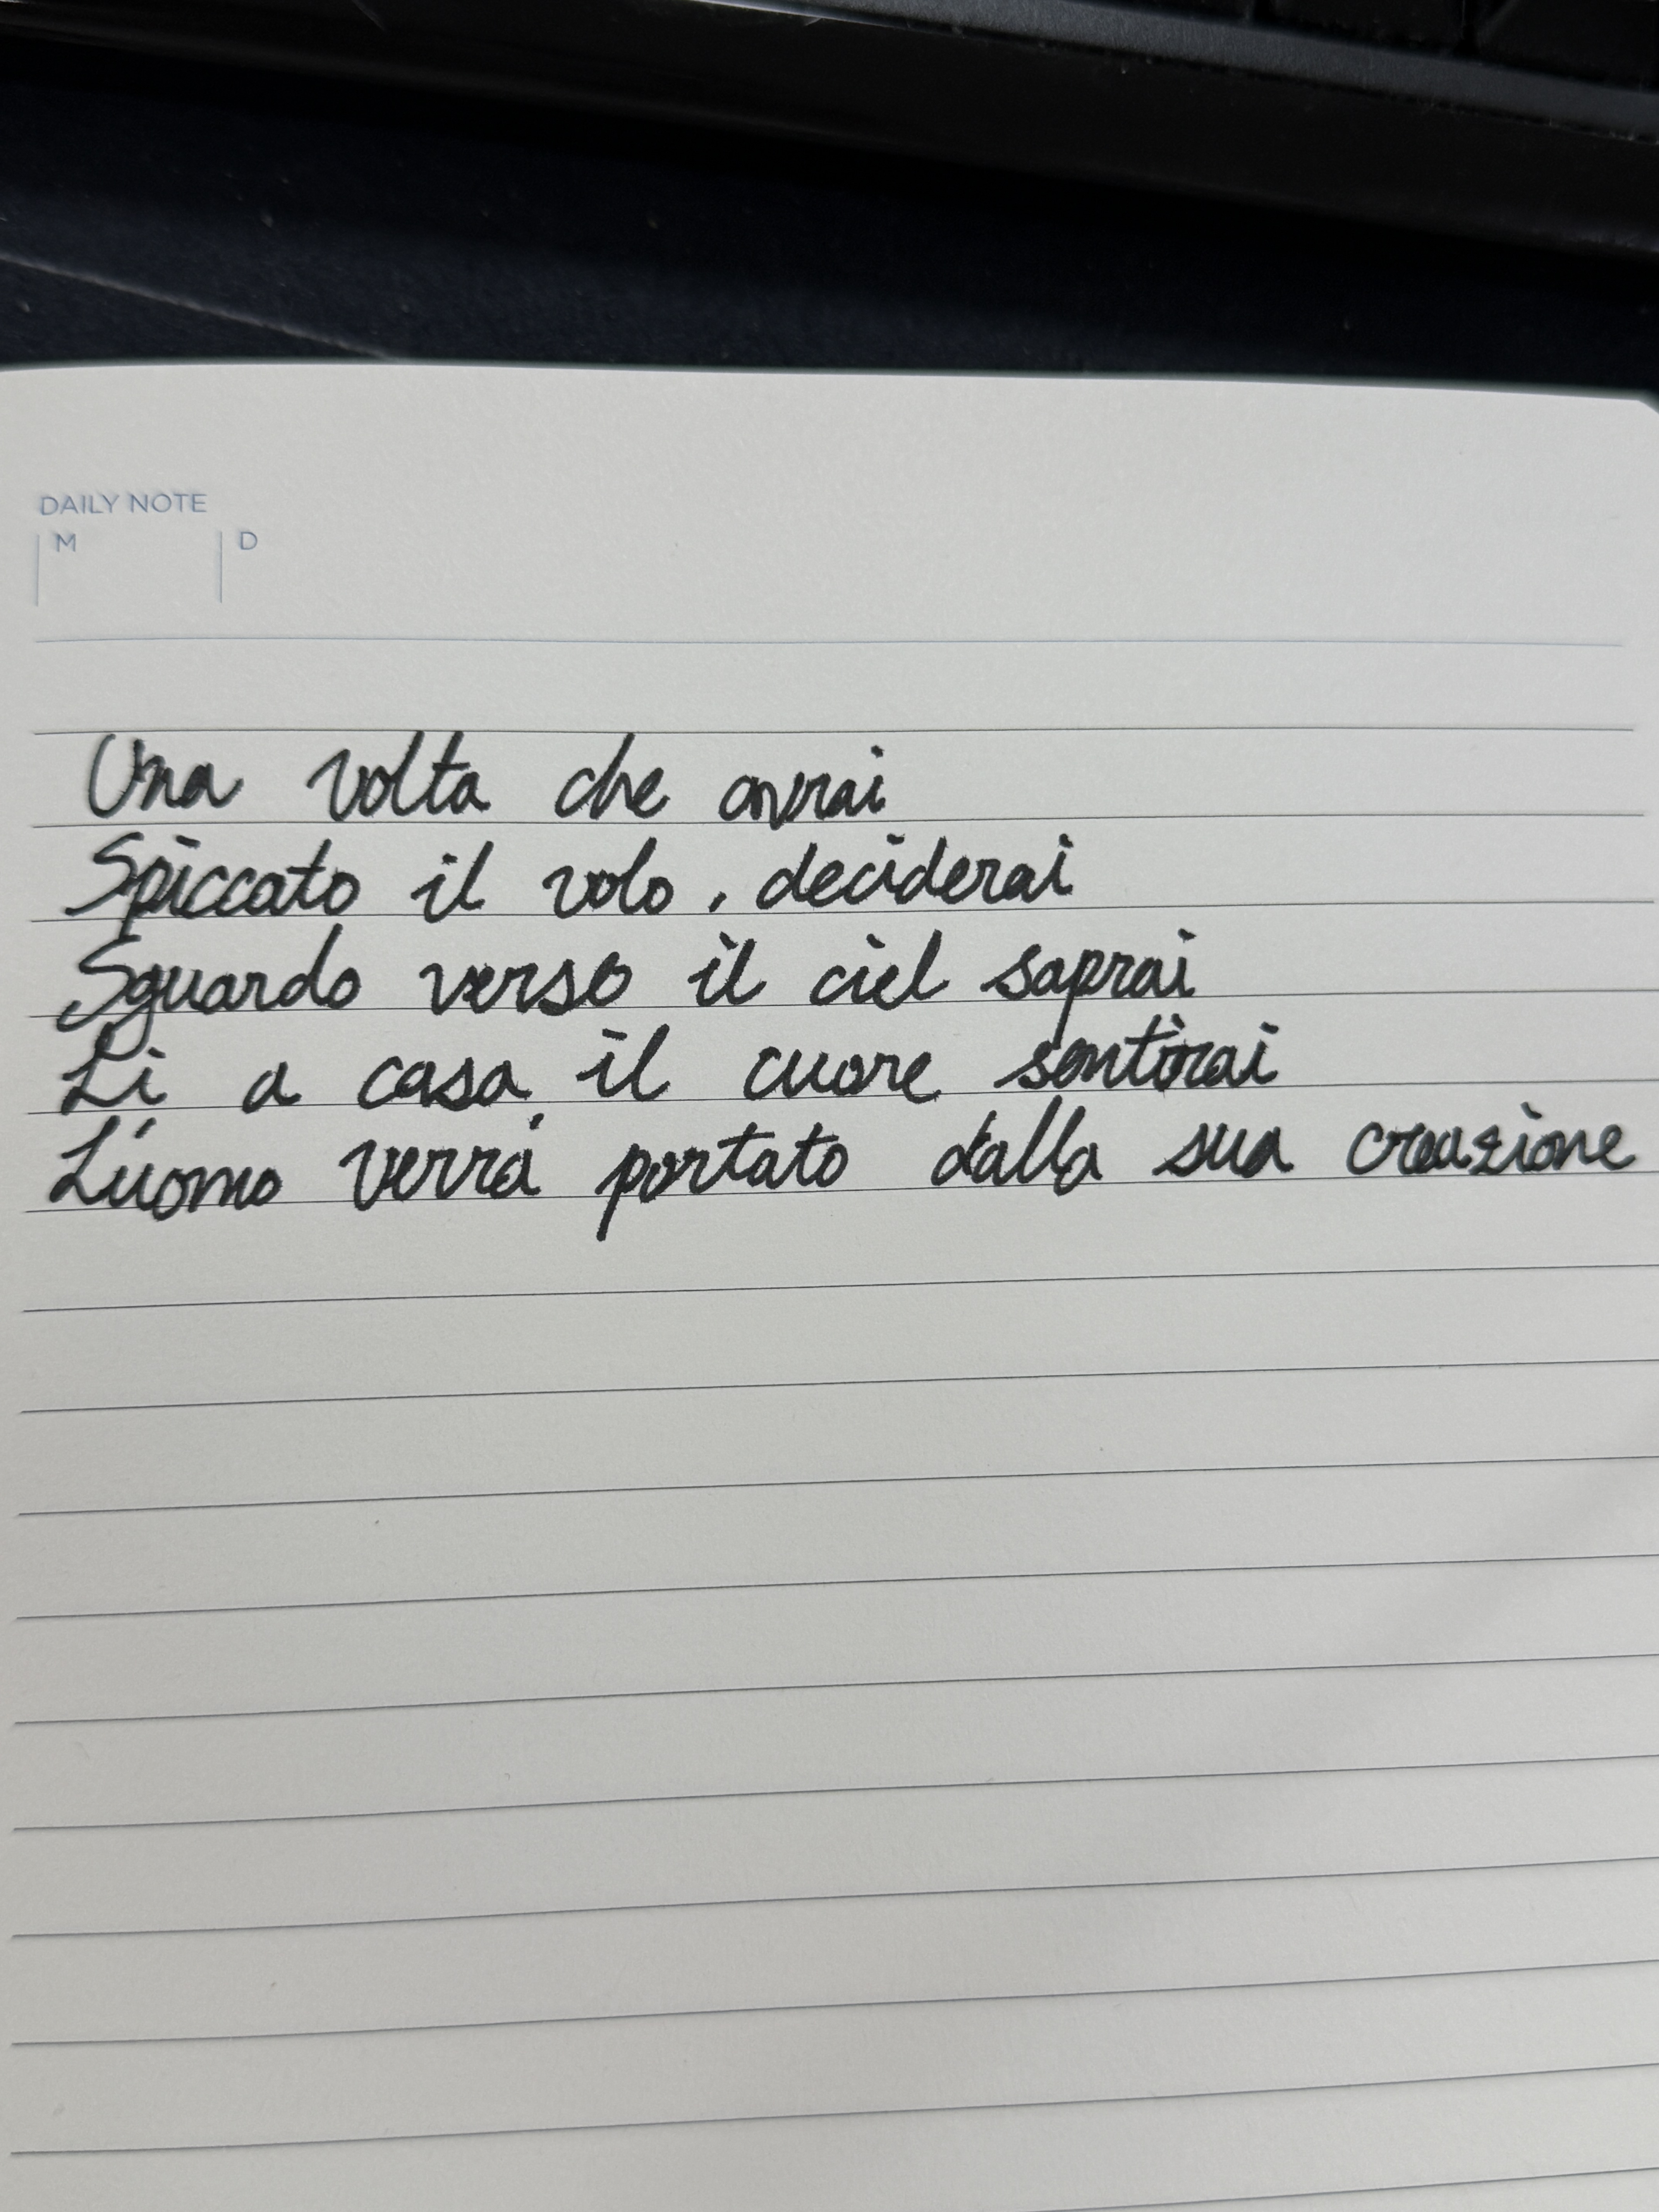 DAILY NOTE
M D
Una volta che avrai
Spiccato il volo, deciderai
Sguardo verso il ciel saprai
Li a casa il cuore sentirai
L'uomo verrá portato dalla sua creazione